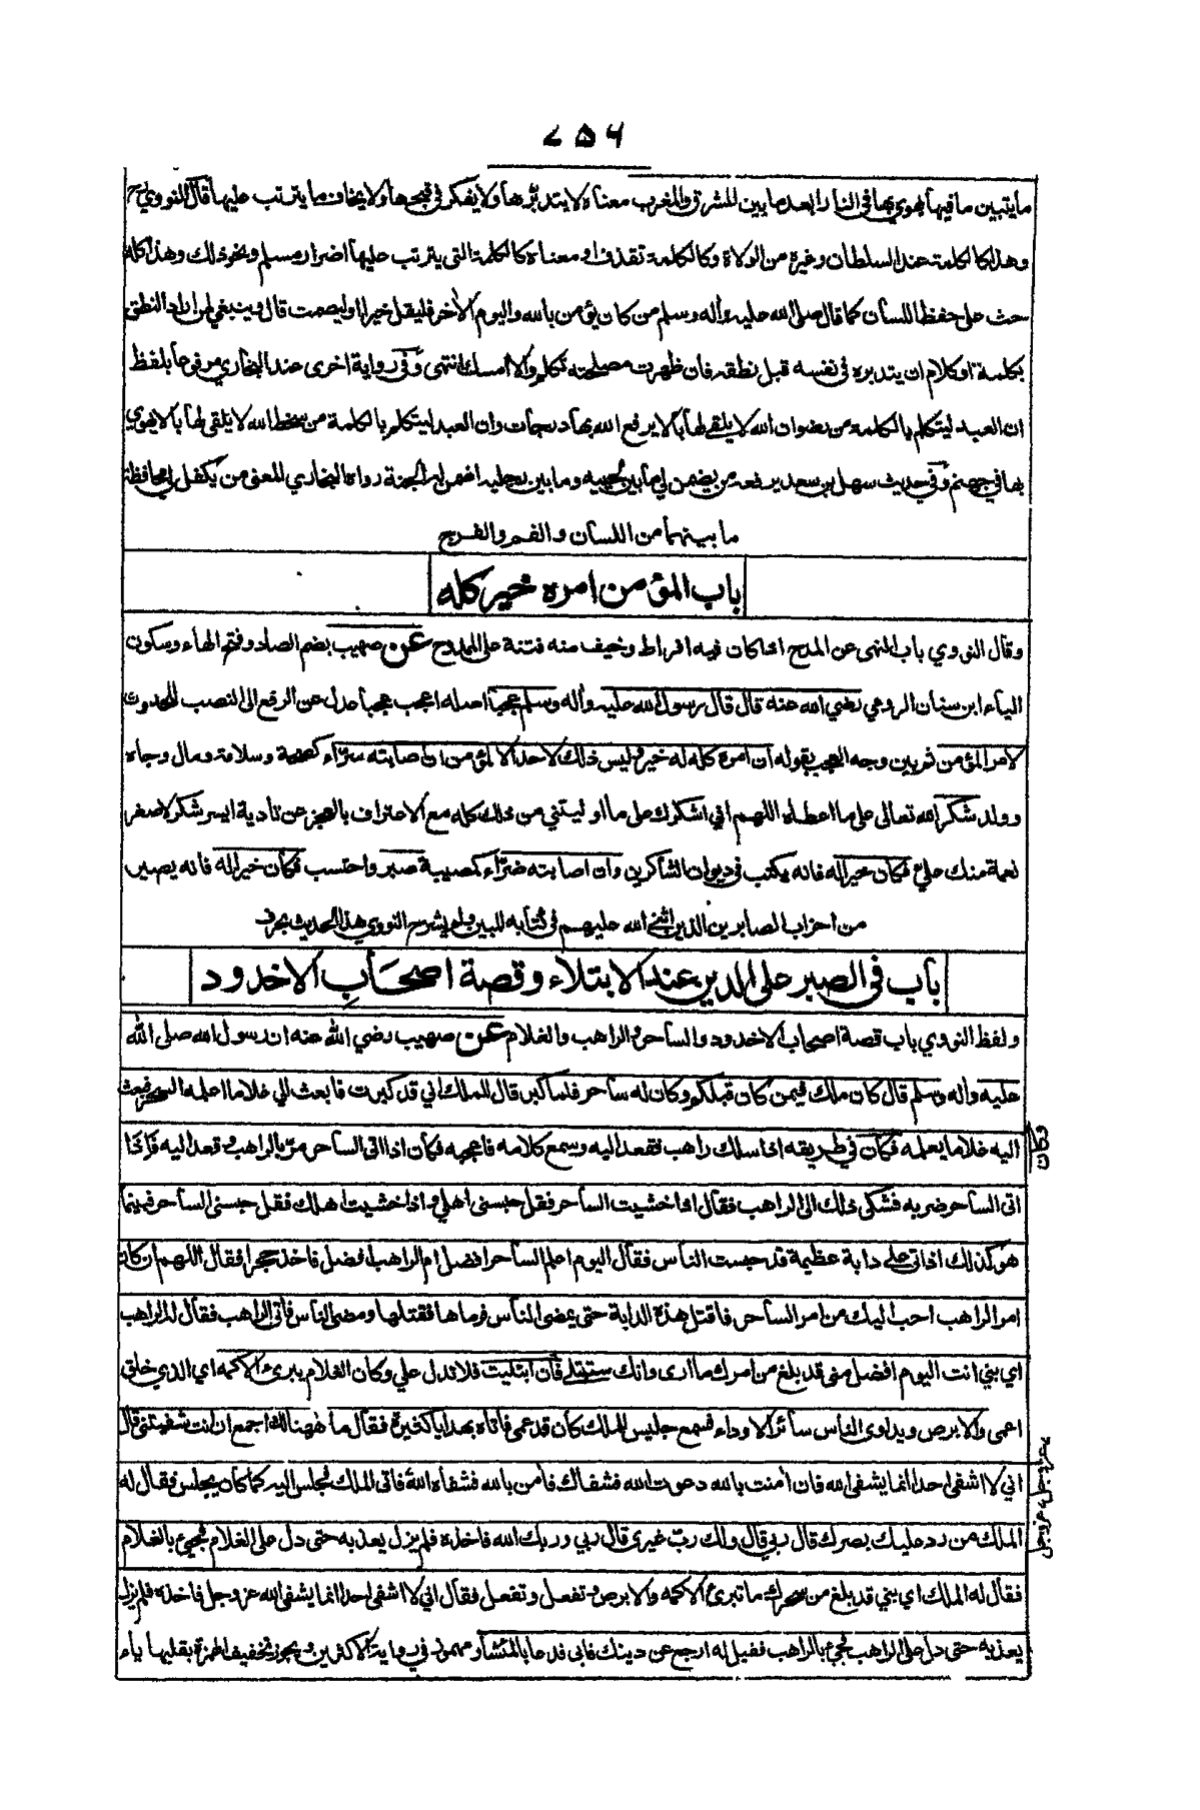 ٧٥٦
ما يتبين ما فيها يهوي بها في النار ابعد ما بين المشرق والمغرب معناه لا يتدبرها ولا يفكر في قبحها ولا يخاف ما يترتب عليها قال النووي رح
وهذا كالكلمة عند السلطان وغيره من الولاة وكالكلمة تقذف او معناه كالكلمة التي يترتب عليها اضرار مسلم ونحو ذلك وهذا كله
حث على حفظ اللسان كما قال صلى الله عليه وأله وسلم من كان يؤمن بالله واليوم الأخر فليقل خيرا او ليصمت قال وينبغي لمن اراد النطق
بكلمة او كلام ان يتدبره في نفسه قبل نطقه فان ظهرت مصلحته تكلم والا امسك انتهى وفي رواية اخرى عند البخاري مرفوعا بلفظ
ان العبد ليتكلم بالكلمة من رضوان الله لا يلقي لها بالا يرفع الله بها درجات وان العبد ليتكلم بالكلمة من سخط الله لا يلقي لها بالا يهوي
بها في جهنم وفي حديث سهل بن سعد يرفعه من يضمن لي ما بين لحييه وما بين رجليه اضمن له الجنة رواه البخاري المعنى من يكفل لي محافظة
ما بينهما من اللسان والفم والفرج
باب المؤمن امره خير كله
وقال النووي باب النهي عن المدح اذا كان فيه افراط وخيف منه فتنة على الممدوح عن صهيب بضم الصاد وفتح الهاء وسكون
الياء ابن سنان الرومي رضي الله عنه قال قال رسول الله عليه وأله وسلم عجبا اصله اعجب عجبا عدل عن الرفع الى النصب للحدوث
لامر المؤمن ثم بين وجه العجب بقوله ان امره كله له خير وليس ذلك لاحد الا للمؤمن ان اصابته سرّاء كصحة وسلامة ومال وجاه
وولد شكر الله تعالى على ما اعطاه اللهم اني اشكرك على ما اوليتني من ذلك كله مع الاعتراف بالعجز عن تادية ايسر شكر لاصغر
نعمة منك علي فكان خيرا له فانه يكتب في ديوان الشاكرين وان اصابته ضرّاء كمصيبة صبر واحتسب فكان خيرا له فانه يصير
من احزاب الصابرين الذين اثنى الله عليهم في كتابه المبين ولم يشرح النووي هذا الحديث بحرف
باب في الصبر على الدين عند الابتلاء وقصة اصحاب الاخدود
ولفظ النووي باب قصة اصحاب الاخدود والساحر والراهب والغلام عن صهيب رضي الله عنه ان رسول الله صلى الله
عليه وأله وسلم قال كان ملك فيمن كان قبلكم وكان له ساحر فلما كبر قال للملك اني قد كبرت فابعث الي غلاما اعلمه السحر فبعث
اليه غلاما يعلمه فكان في طريقه اذا سلك راهب فقعد اليه وسمع كلامه فاعجبه فكان اذا اتى الساحر مرّ بالراهب وقعد اليه فاذا
وكان
اتى الساحر ضربه فشكى ذلك الى الراهب فقال اذا خشيت الساحر فقل حبسني اهلي واذا خشيت اهلك فقل حبسني الساحر فبينما
هو كذلك اذ اتى على دابة عظيمة قد حبست الناس فقال اليوم اعلم الساحر افضل ام الراهب افضل فاخذ حجرا فقال اللهم ان كان
امر الراهب احب اليك من امر الساحر فاقتل هذه الدابة حتى يمضي الناس فرماها فقتلها ومضى الناس فأتى الراهب فقال له الراهب
اي بني انت اليوم افضل مني قد بلغ من امرك ما ارى وانك ستبتلى فان ابتليت فلا تدل علي وكان الغلام يبرئ الاكمه اي الذي خلق
اعمى والابرص ويداوي الناس سائر الادواء فسمع جليس للملك كان قد عمي فاتاه بهدايا كثيرة فقال ما ههنا لك اجمع ان انت شفيتني قال
اني لا اشفي احدا انما يشفي الله فان أمنت بالله دعوت الله فشفاك فأمن بالله فشفاه الله فاتى الملك فجلس اليه كما كان يجلس فقال له
الملك من رد عليك بصرك قال ربي قال ولك ربّ غيري قال ربي وربك الله فاخذه فلم يزل يعذبه حتى دل على الغلام فجيء بالغلام
فقال له الملك اي بني قد بلغ من سحرك ما تبرئ الاكمه والابرص وتفعل وتفعل فقال اني لا اشفي احدا انما يشفي الله عز وجل فاخذه فلم يزل
يعذبه حتى دل على الراهب فجيء بالراهب فقيل له ارجع عن دينك فابى فدعا بالمئشار مهموز في رواية الاكثرين ويجوز تخفيف الهمزة بقلبها ياء